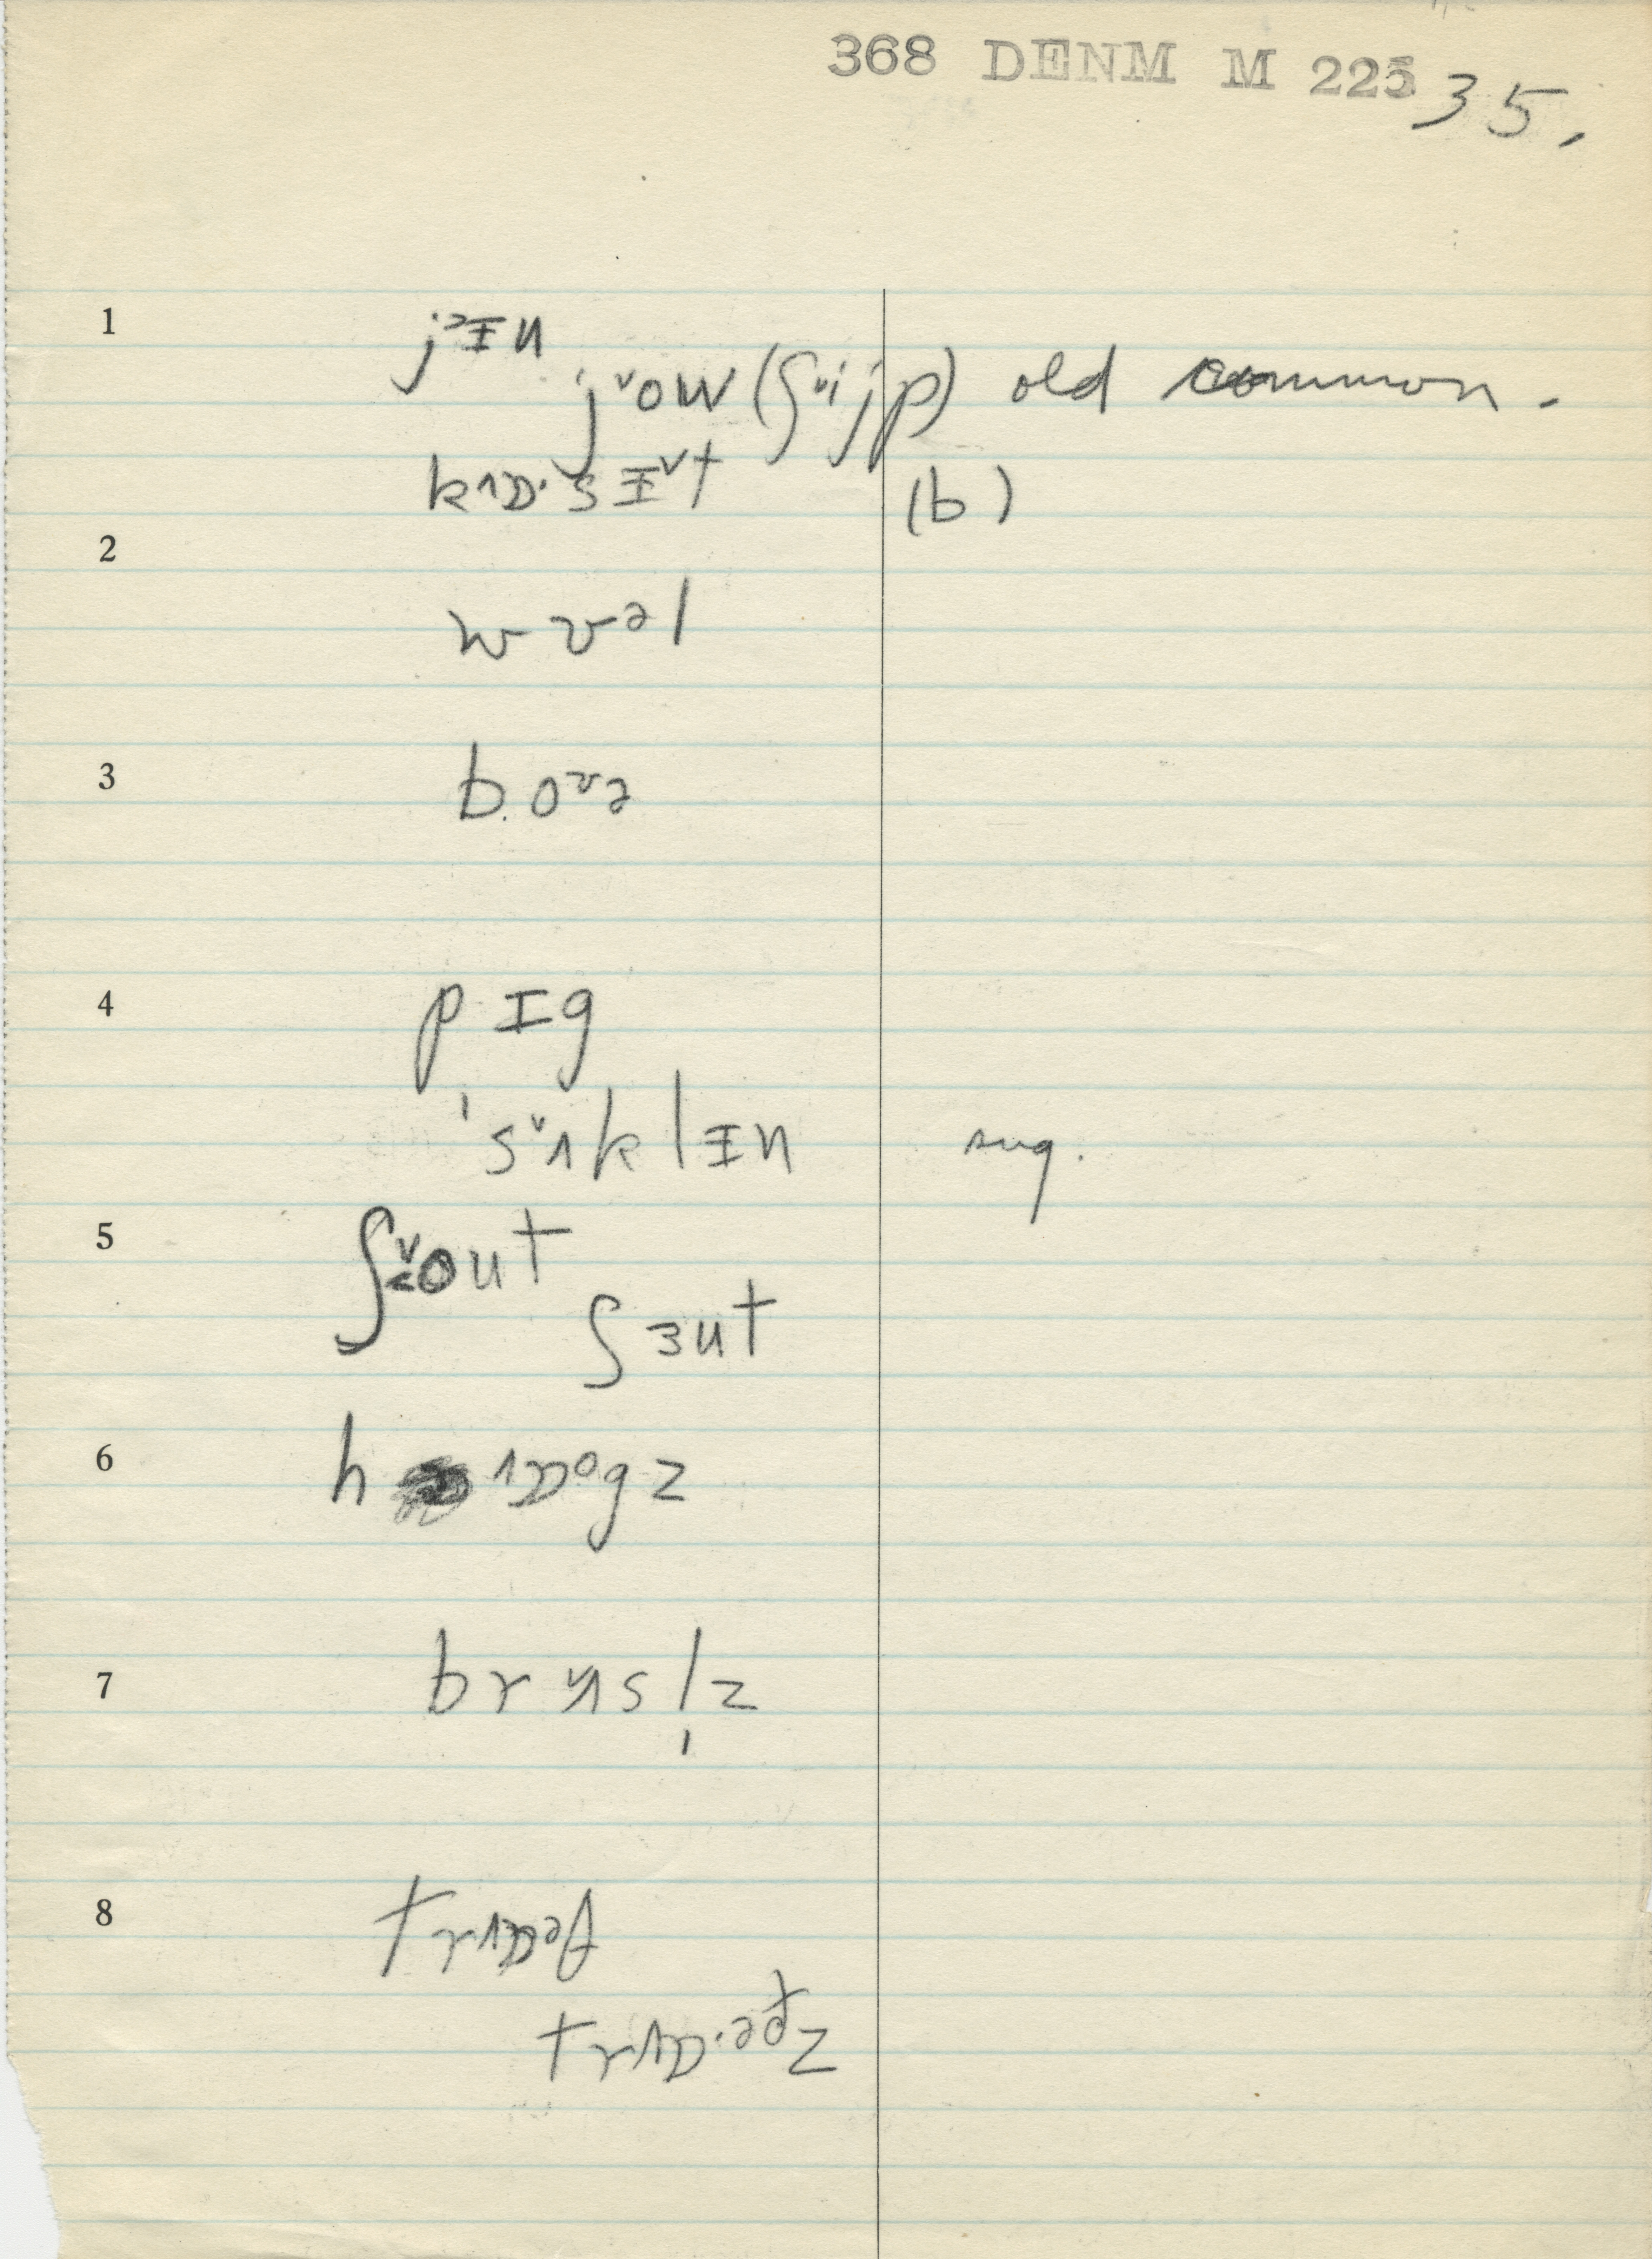 368 DENM M 225 35.
1 jᵊɪn
jˇow (ʃˇijp) old common.
kʌɒ·sɪˇt (b)
2
wvəl
3 b.oˇə
4 pɪg
'sˇʌklɪn sug.
5 ʃˇout
ʃɜut
6 hʌɒᵒgz
7 brˇʌsl̩z
8 trʌɒəf
trʌɒ·əðz